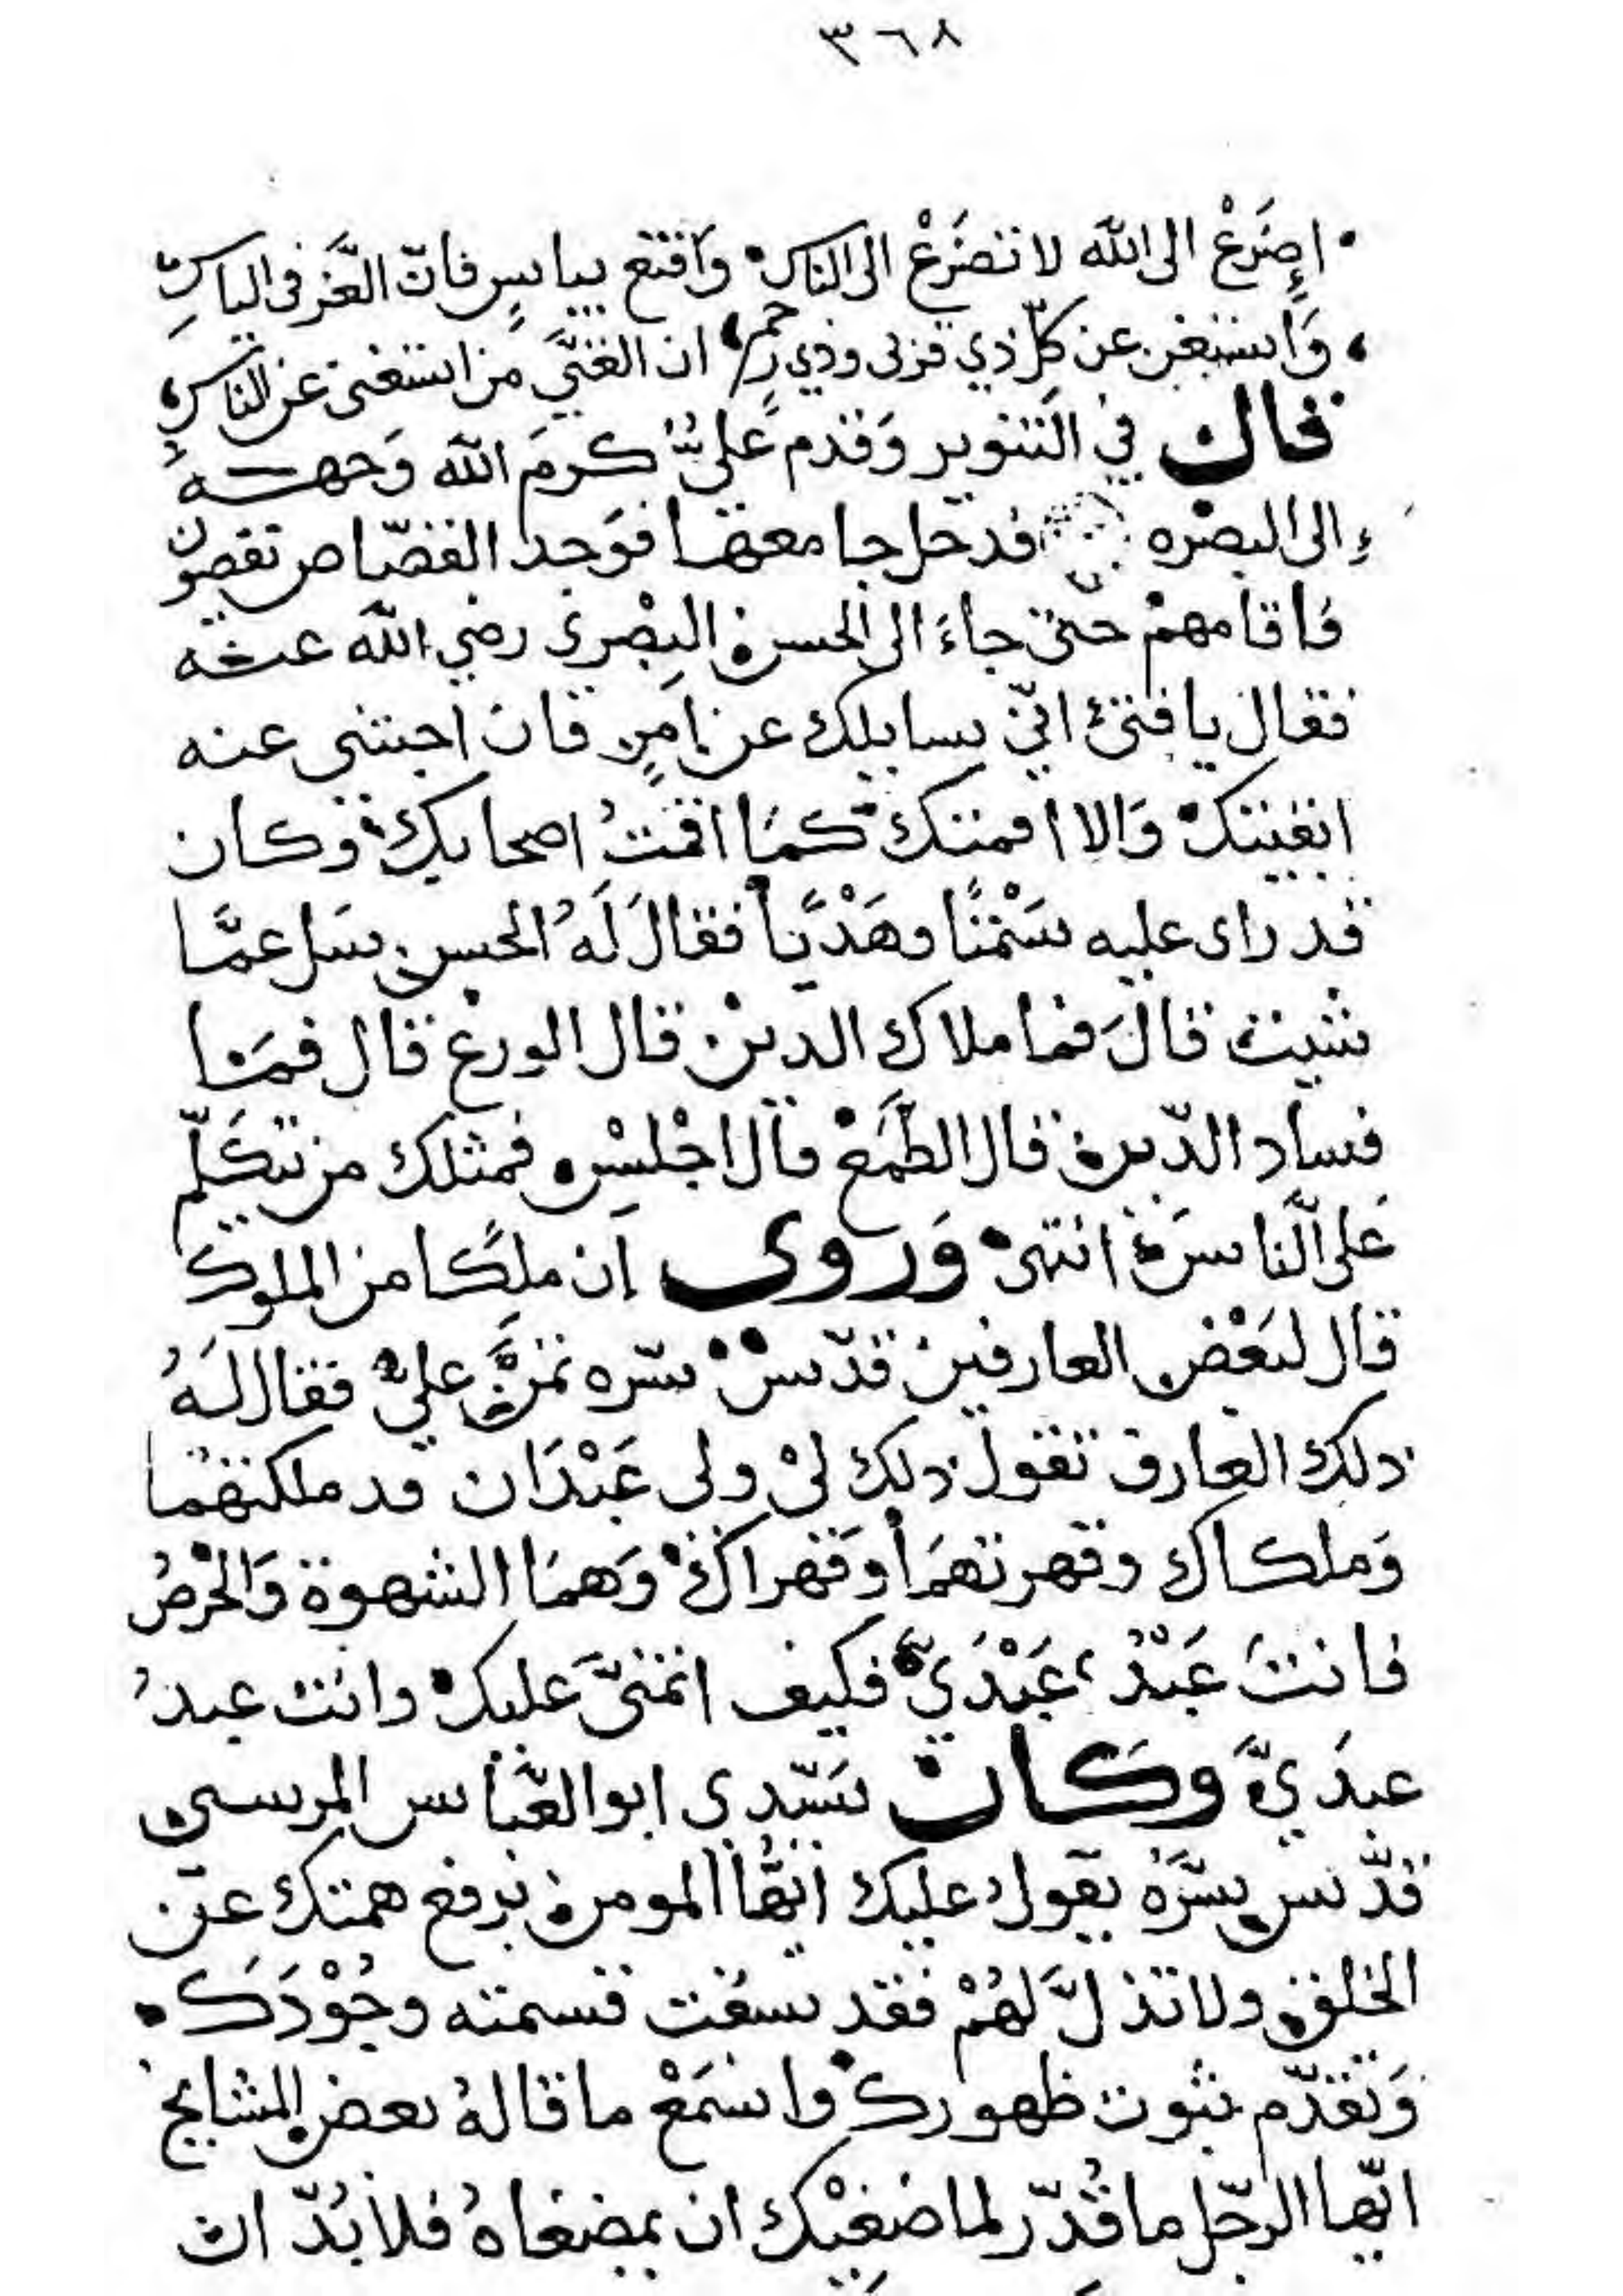 ٣٦٨
إِضرَعْ الى الله لا تضرَعْ الى الناس وَاقنع بياسٍ فانّ العِزّ فى الياسِ
وَاستغنِ عن كلّ ذي قربى وذي رحم ان الغنيَّ من استغنى عن الناسِ
قال في التنوير وَقدم عَليٌّ كرمَ الله وَجهه
إلى البصْره فدخل جامعها فوَجد القصّاص يقصون
فاقامهمْ حتّى جاءَ الى الحسن البصْرى رضي الله عنه
فقال يا فتىً انّي سايلك عن امرٍ فان اجبتني عنه
ابقيتك وَالا اقمتك كمَا اقمتُ اصحابك وكان
قد راى عليه سَمْتًا وهَدْيًا فقالَ لَهُ الحسن سَل عمَّا
شيت قالَ فما ملاك الدين قال الورع قال فمَا
فساد الدّين قال الطمَعْ قال اجْلِسْ فمثلك من يتكَلّم
عَلى النّاس انتهى وَروى ان ملكًا من الملوك
قال لبَعْض العارفين قدّسَ سّره تمنَّ عليّ فقال لَهُ
ذلك العارف تقول ذلك لىْ ولى عَبْدَان قد ملكتهما
وَملكاك وقهرتهمَا وَقهراكَ وَهمَا الشهوة وَالحْرصُ
فانتَ عَبْدُ عَبْدَيَّ فكيف اتمنّى عَليك وانت عبدُ
عبدَيَّ وكَانَ سَيّدى ابو العَّباس المرسي
قدّس سِرَّه يقول عليك ايّها المومن برفع همتك عن
الخلق ولا تذلَّ لهُمْ فقد سبقت قسمته وجُوْدَكَ
وَتقدّم ثبوت ظهورك واسْمَعْ ما قالهُ بعض المشايخ
ايّها الرجّل ما قُدّر لماضغيْك ان يمضغاهُ فلا بُدّ ان